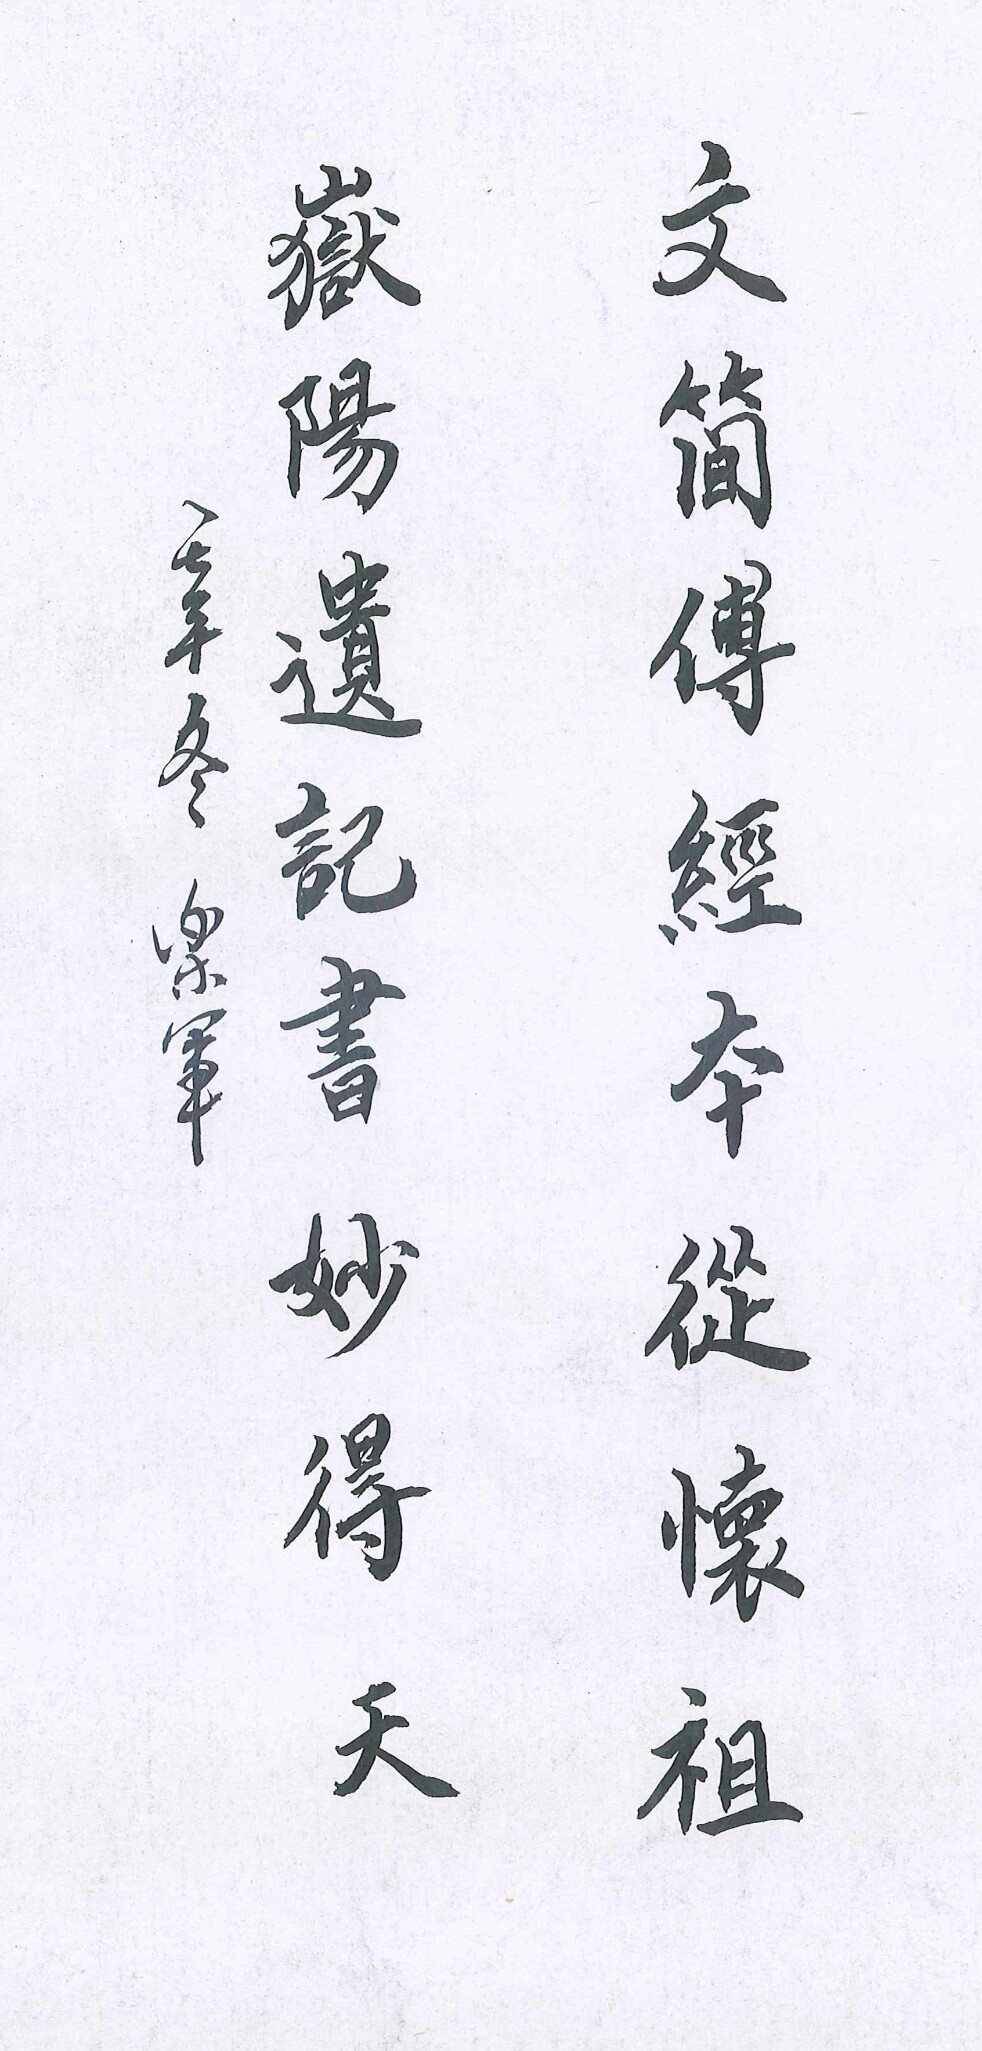 文簡傳經本從懷祖
嶽陽遺記書妙得天
一七年冬 樂軍